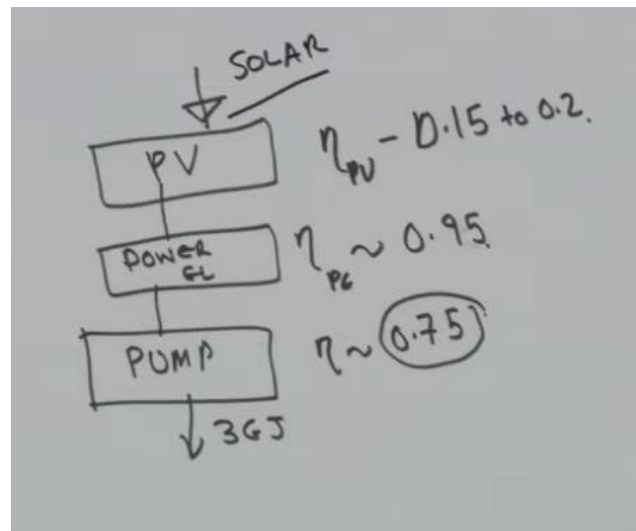 SOLAR
PV
η_PV - 0.15 to 0.2.
POWER
EL
η_PE ~ 0.95
PUMP
η ~ 0.75
3GJ